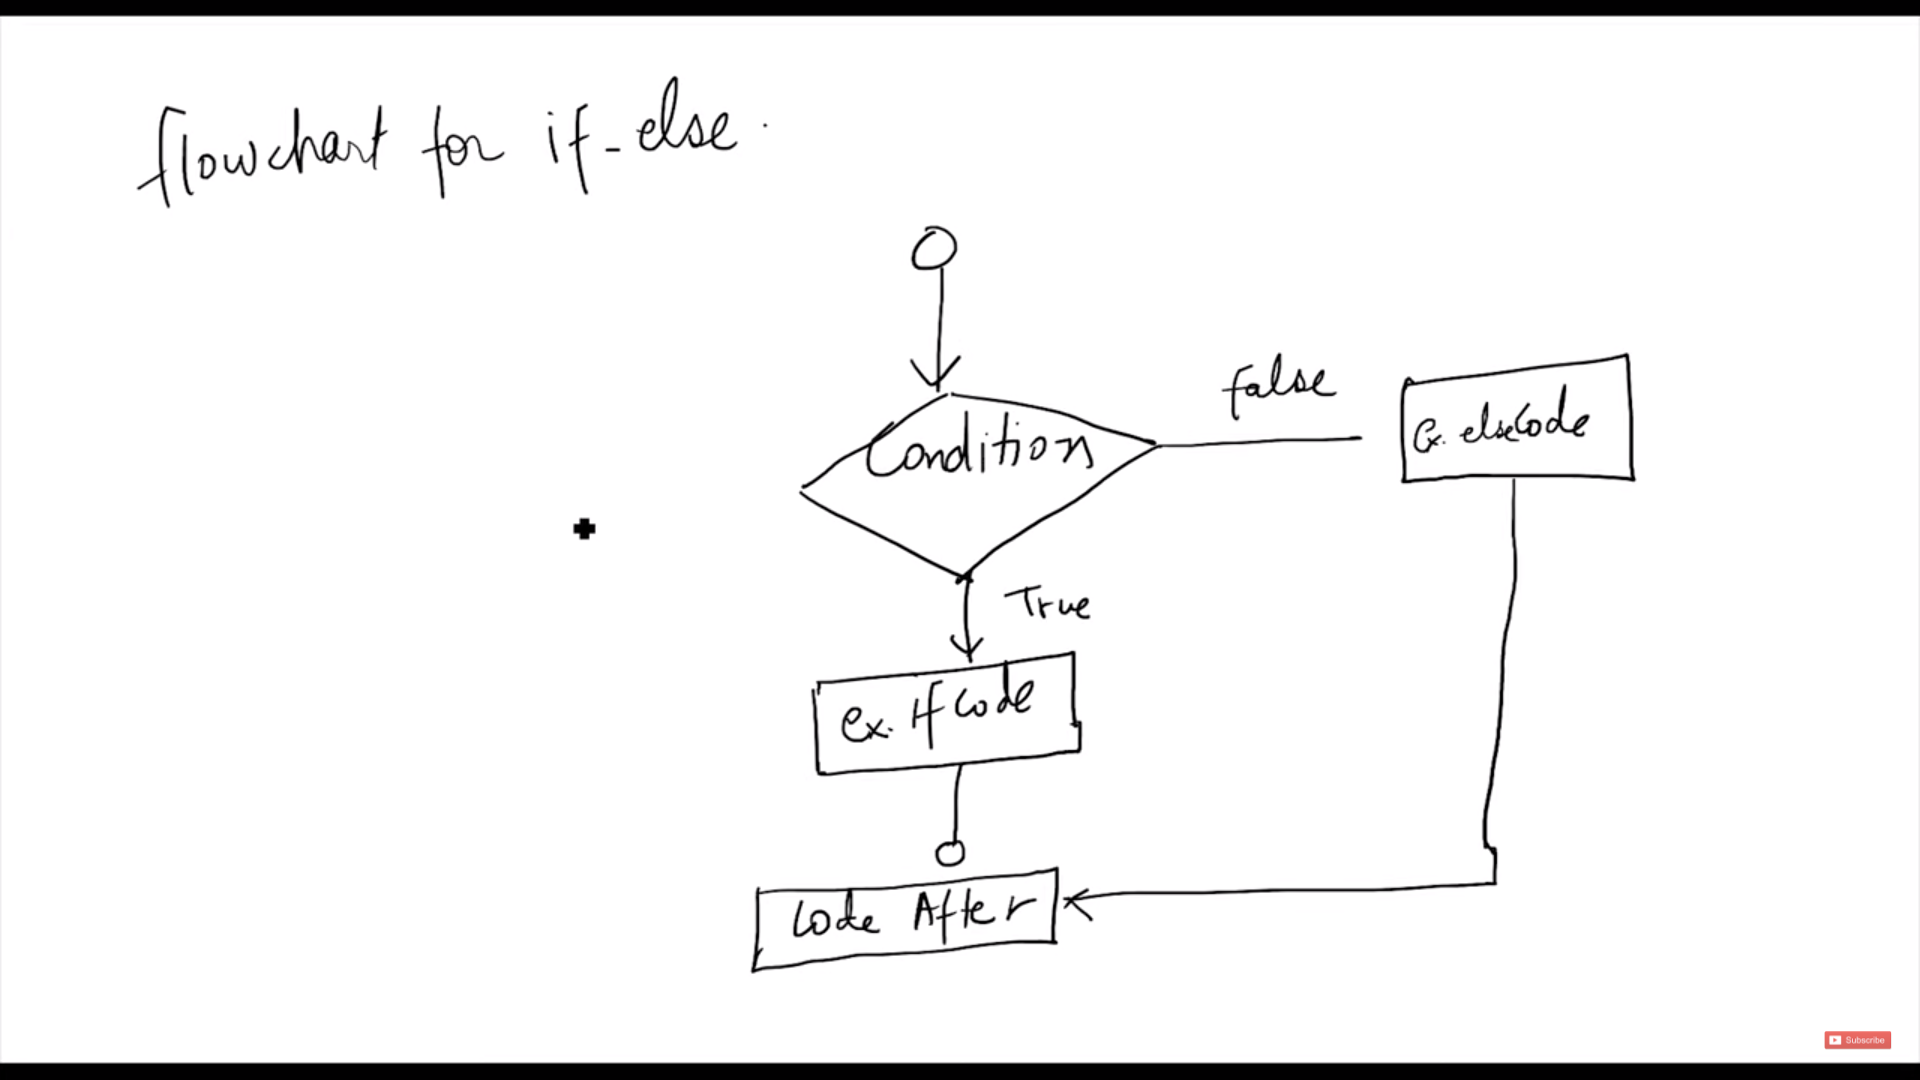 flowchart for if-else.
Condition
false
ex. elseCode
True
ex. if Code
Code After
Subscribe